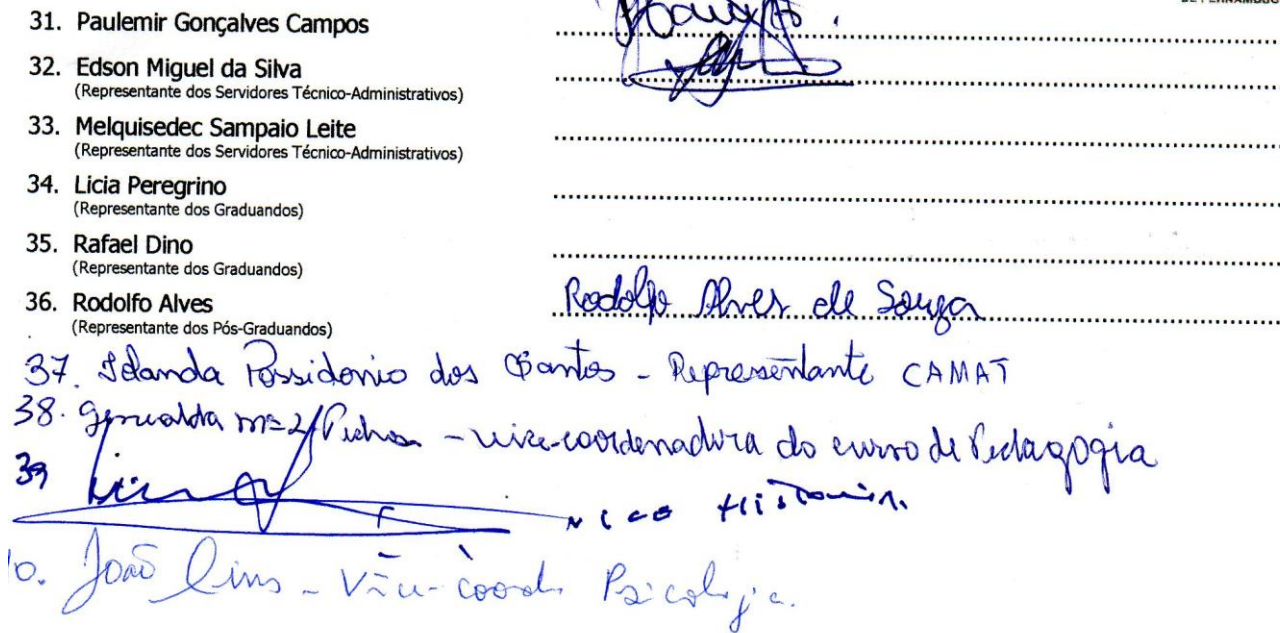 DE PERNAMBUCO
31. Paulemir Gonçalves Campos
32. Edson Miguel da Silva
(Representante dos Servidores Técnico-Administrativos)
33. Melquisedec Sampaio Leite
(Representante dos Servidores Técnico-Administrativos)
34. Licia Peregrino
(Representante dos Graduandos)
35. Rafael Dino
(Representante dos Graduandos)
36. Rodolfo Alves Rodolfo Alves de Souza
(Representante dos Pós-Graduandos)
37. Possidonio dos Santos - Representante CAMAT
38. - vice-coordenadora do curso de Pedagogia
39
João Lins - Vice-coord. Psicologia.